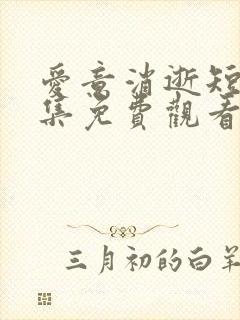 愛意消逝短
集免費觀看
三月初的白羊